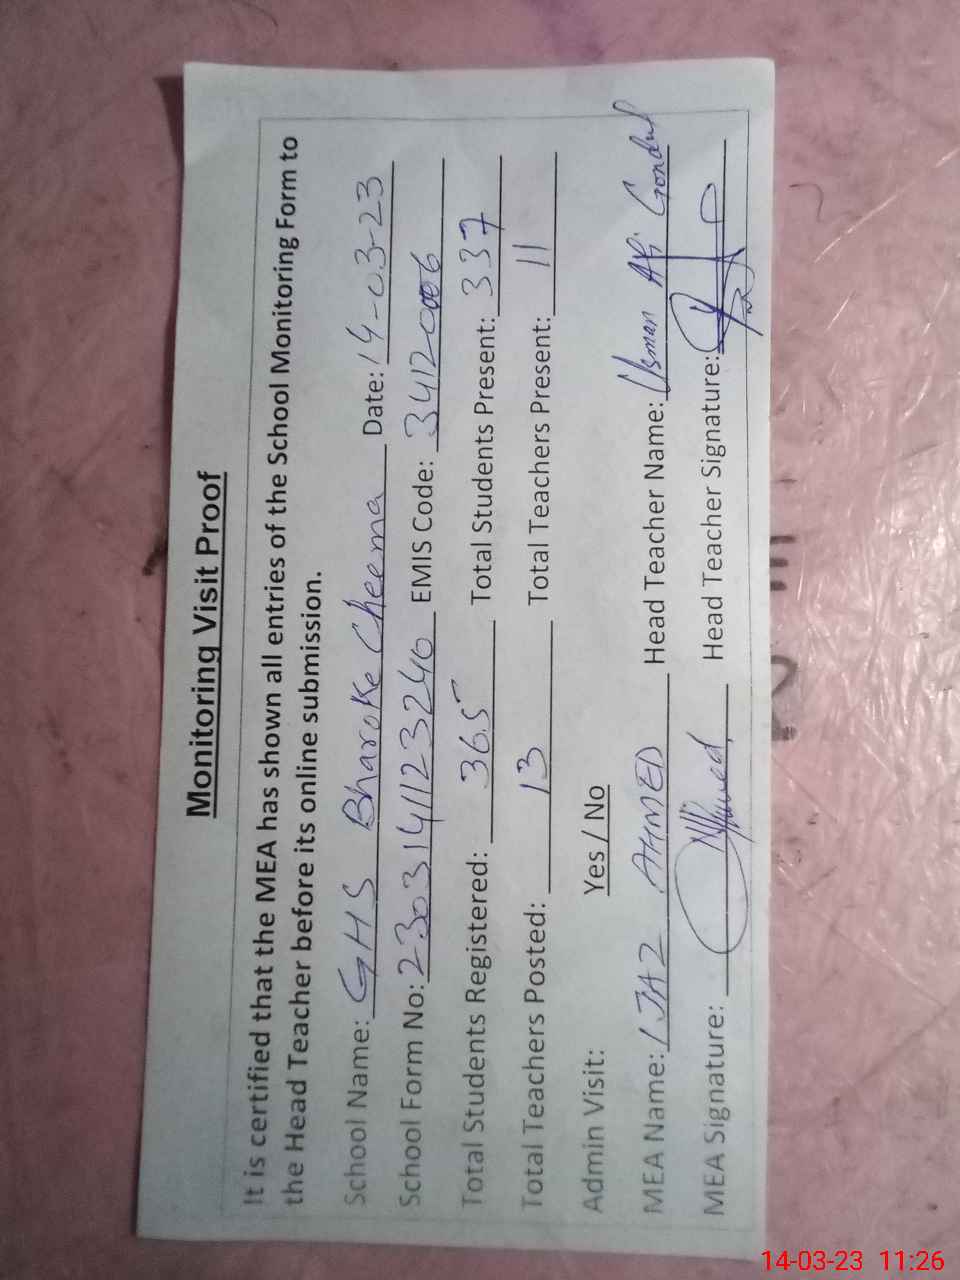 Monitoring Visit Proof
It is certified that the MEA has shown all entries of the School Monitoring Form to
the Head Teacher before its online submission.
School Name: GHS Bharoke Cheema Date: 14-03-23
School Form No: 23031411123240 EMIS Code: 34120006
Total Students Registered: 365 Total Students Present: 337
Total Teachers Posted: 13 Total Teachers Present: 11
Admin Visit: Yes / No
MEA Name: IJAZ AHMED Head Teacher Name: Usman Ali Gondal
MEA Signature: Head Teacher Signature:
14-03-23 11:26